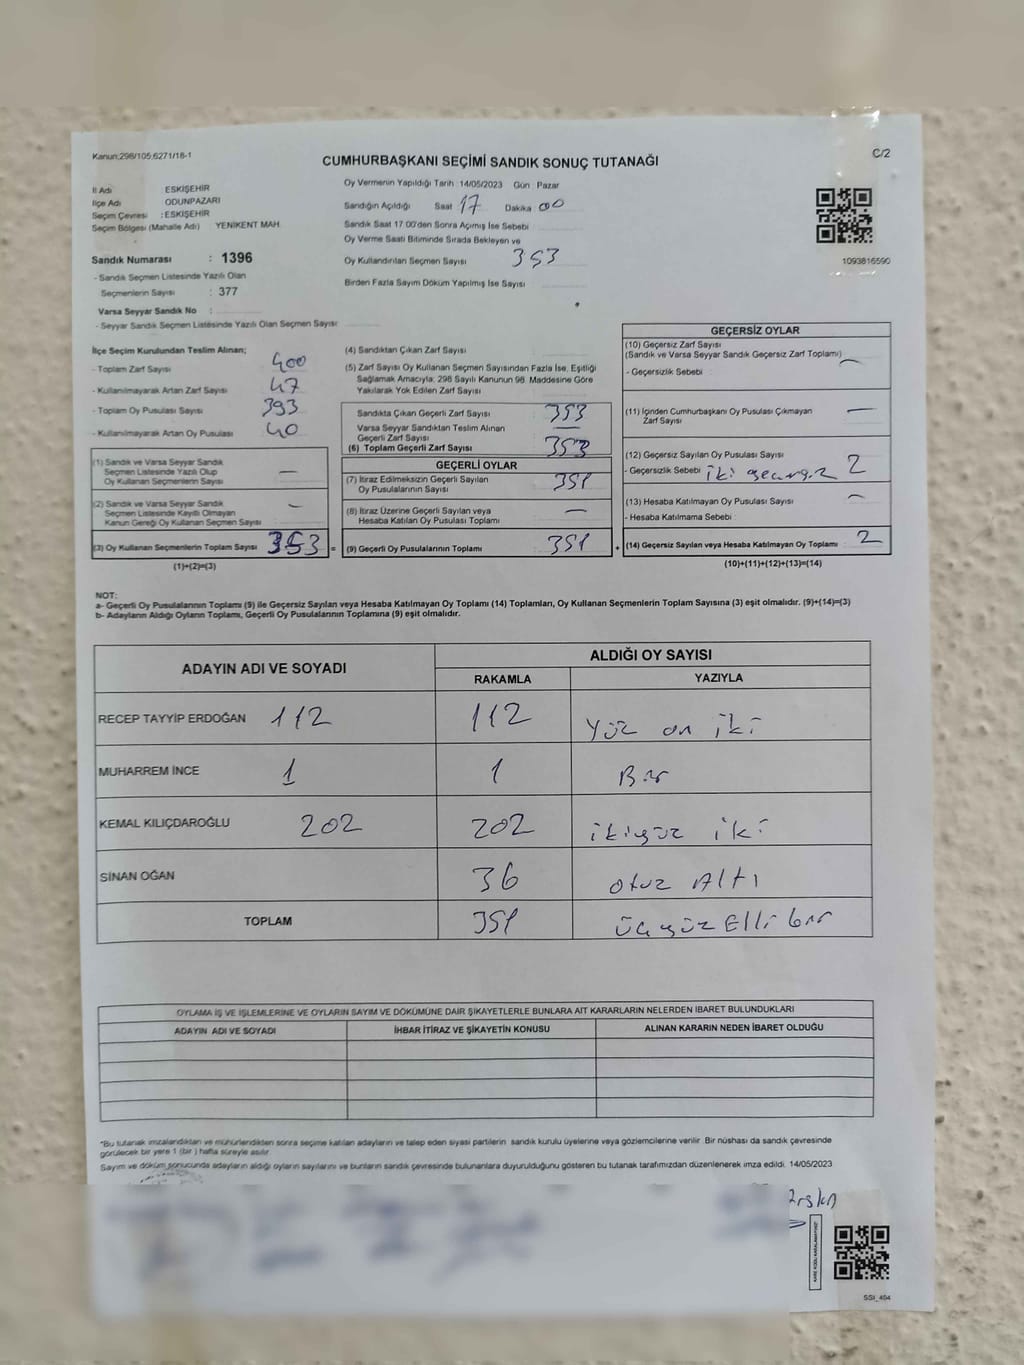 Kanun:298/105;6271/18-1
C/2
CUMHURBAŞKANI SEÇİMİ SANDIK SONUÇ TUTANAĞI
İl Adı : ESKİŞEHİR
İlçe Adı ODUNPAZARI
Seçim Çevresi : ESKİŞEHİR
Seçim Bölgesi (Mahalle Adı) YENİKENT MAH.
Sandık Numarası : 1396
- Sandık Seçmen Listesinde Yazılı Olan
Seçmenlerin Sayısı : 377
Varsa Seyyar Sandık No :
- Seyyar Sandık Seçmen Listesinde Yazılı Olan Seçmen Sayısı
Oy Vermenin Yapıldığı Tarih :14/05/2023 Gün : Pazar
Sandığın Açıldığı Saat 17 Dakika 00
Sandık Saat 17:00'den Sonra Açılmış İse Sebebi
Oy Verme Saati Bitiminde Sırada Bekleyen ve
Oy Kullandırılan Seçmen Sayısı 353
Birden Fazla Sayım Döküm Yapılmış İse Sayısı
1093816590
İlçe Seçim Kurulundan Teslim Alınan;
- Toplam Zarf Sayısı 400
- Kullanılmayarak Artan Zarf Sayısı 47
- Toplam Oy Pusulası Sayısı 393
- Kullanılmayarak Artan Oy Pusulası 40
(1) Sandık ve Varsa Seyyar Sandık
Seçmen Listesinde Yazılı Olup
Oy Kullanan Seçmenlerin Sayısı —
(2) Sandık ve Varsa Seyyar Sandık
Seçmen Listesinde Kayıtlı Olmayan
Kanun Gereği Oy Kullanan Seçmen Sayısı —
(3) Oy Kullanan Seçmenlerin Toplam Sayısı 353 =
(1)+(2)=(3)
(4) Sandıktan Çıkan Zarf Sayısı
(5) Zarf Sayısı Oy Kullanan Seçmen Sayısından Fazla İse, Eşitliği
Sağlamak Amacıyla; 298 Sayılı Kanunun 98. Maddesine Göre
Yakılarak Yok Edilen Zarf Sayısı
Sandıkta Çıkan Geçerli Zarf Sayısı 353
Varsa Seyyar Sandıktan Teslim Alınan
Geçerli Zarf Sayısı —
(6) Toplam Geçerli Zarf Sayısı 353
GEÇERLİ OYLAR
(7) İtiraz Edilmeksizin Geçerli Sayılan
Oy Pusulalarının Sayısı 351
(8) İtiraz Üzerine Geçerli Sayılan veya
Hesaba Katılan Oy Pusulası Toplamı —
(9) Geçerli Oy Pusulalarının Toplamı 351 +
GEÇERSİZ OYLAR
(10) Geçersiz Zarf Sayısı
(Sandık ve Varsa Seyyar Sandık Geçersiz Zarf Toplamı) —
- Geçersizlik Sebebi :
(11) İçinden Cumhurbaşkanı Oy Pusulası Çıkmayan
Zarf Sayısı —
(12) Geçersiz Sayılan Oy Pusulası Sayısı 2
- Geçersizlik Sebebi iki geçersiz
(13) Hesaba Katılmayan Oy Pusulası Sayısı —
- Hesaba Katılmama Sebebi :
(14) Geçersiz Sayılan veya Hesaba Katılmayan Oy Toplamı 2
(10)+(11)+(12)+(13)=(14)
NOT:
a- Geçerli Oy Pusulalarının Toplamı (9) ile Geçersiz Sayılan veya Hesaba Katılmayan Oy Toplamı (14) Toplamları, Oy Kullanan Seçmenlerin Toplam Sayısına (3) eşit olmalıdır. (9)+(14)=(3)
b- Adayların Aldığı Oyların Toplamı, Geçerli Oy Pusulalarının Toplamına (9) eşit olmalıdır.
ADAYIN ADI VE SOYADI ALDIĞI OY SAYISI
RAKAMLA YAZIYLA
RECEP TAYYİP ERDOĞAN 112 112 Yüz on iki
MUHARREM İNCE 1 1 Bir
KEMAL KILIÇDAROĞLU 202 202 ikiyüz iki
SİNAN OĞAN 36 otuz Altı
TOPLAM 351 üçyüz Elli bir
OYLAMA İŞ VE İŞLEMLERİNE VE OYLARIN SAYIM VE DÖKÜMÜNE DAİR ŞİKAYETLERLE BUNLARA AİT KARARLARIN NELERDEN İBARET BULUNDUKLARI
ADAYIN ADI VE SOYADI İHBAR İTİRAZ VE ŞİKAYETİN KONUSU ALINAN KARARIN NEDEN İBARET OLDUĞU
"Bu tutanak imzalandıktan ve mühürlendikten sonra seçime katılan adayların ve talep eden siyasi partilerin sandık kurulu üyelerine veya gözlemcilerine verilir. Bir nüshası da sandık çevresinde
görülecek bir yere 1 (bir ) hafta süreyle asılır.
Sayım ve döküm sonucunda adayların aldığı oyların sayılarını ve bunların sandık çevresinde bulunanlara duyurulduğunu gösteren bu tutanak tarafımızdan düzenlenerek imza edildi. 14/05/2023
KARE KODU KARALAMAYINIZ!
SSI_404